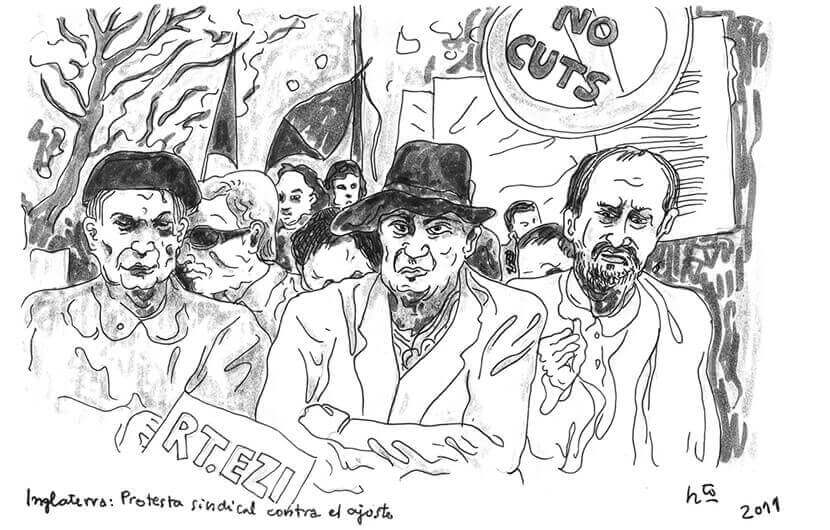 NO
CUTS
RT.EZI
Inglaterra: Protesta sindical contra el ajuste
hto
2011